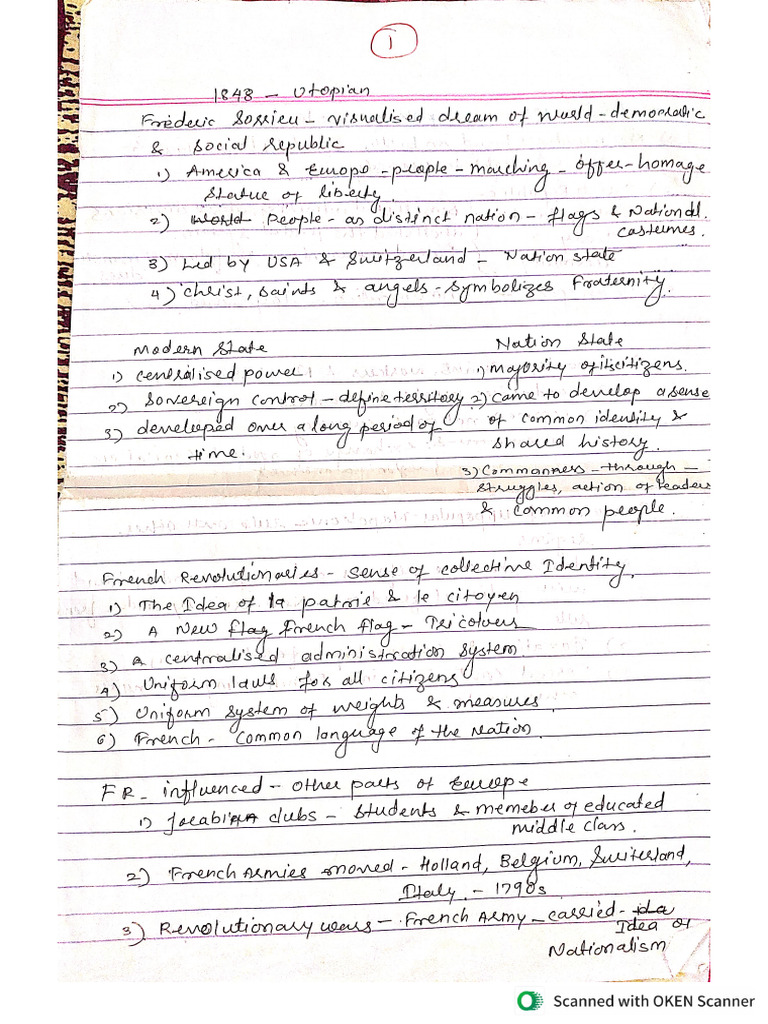 1
1848 - Utopian
Frederic Sorrieu - visualised dream of world - democratic
& social republic
1) America & Europe - people - marching - offer - homage
statue of liberty.
2) World People - as distinct nation - flags & National
costumes.
3) Led by USA & Switzerland - Nation state
4) Christ, saints & angels - symbolizes Fraternity.
Modern State
1) centralised power
2) Sovereign control - define territory
3) developed over a long period of
time.
Nation State
1) majority of its citizens.
2) came to develop a sense
of common identity &
shared history.
3) Commanness - through -
struggles, action of leaders
& common people.
French Revolutionaries - sense of collective Identity.
1) The Idea of la patrie & le citoyen
2) A New flag French flag - Tricolours
3) A centralised administration system
4) Uniform laws for all citizens
5) Uniform system of weights & measures.
6) French - Common language of the Nation.
FR - influenced - other parts of Europe
1) Jacobian clubs - students & memeber of educated
middle class.
2) French Armies moved - Holland, Belgium, Switerland,
Italy. - 1790s
3) Revolutionary wars - French Army - carried - Ida
Idea of
Nationalism
Scanned with OKEN Scanner